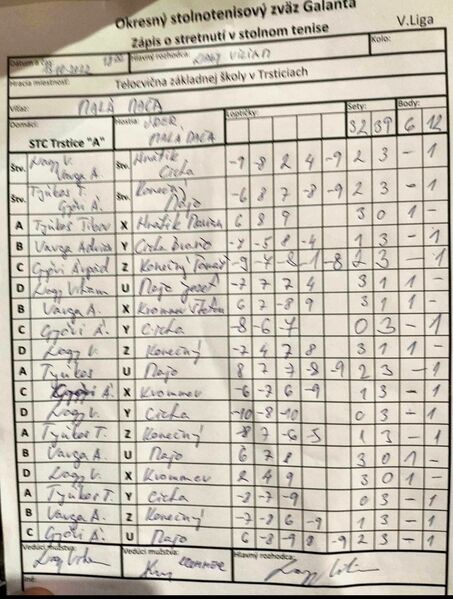 Okresný stolnotenisový zväz Galanta
V.Liga
Zápis o stretnutí v stolnom tenise
Dátum a čas Hlavný rozhodca: Kolo:
Hracia miestnosť: Telocvična základnej školy v Trsticiach
Víťaz: MALÁ MAČA
Domáci: Hostia: Loptičky: Sety: Body:
STC Trstice "A" MALÁ MAČA 32 39 6 12
Štv. Nagy V. Varga Á. Štv. Hrušík Cicha -9 -8 2 4 -9 2 3 - 1
Štv. Tyukos T. Győri Á. Štv. Konečný Majo -6 8 7 -8 -9 2 3 - 1
A Tyukos Tibor X 6 8 9 3 0 1 -
B Varga Y Cicha -7 -5 8 -4 1 3 - 1
C Győri Árpád Z Konečný Tomáš -9 -7 -8 2 3 - 1
D Nagy Viliam U Majo Jozef -7 7 7 4 3 1 1 -
B Varga Á. X Krommer 6 7 -8 9 3 1 1 -
C Győri Á. Y Cicha -8 -6 -7 0 3 - 1
D Nagy V. Z Konečný -7 4 7 8 3 1 1 -
A Tyukos U Majo 8 7 -8 -9 2 3 - 1
C Győri Á. X Krommer -6 -7 6 -9 1 3 - 1
D Nagy V. Y Cicha -10 -8 -10 0 3 - 1
A Tyukos T. Z Konečný -8 7 -6 -5 1 3 - 1
B Varga Á. U Majo 6 7 8 3 0 1 -
D Nagy V. X Krommer 2 4 9 3 0 1 -
A Tyukos T. Y Cicha -8 -7 -9 0 3 - 1
B Varga Á. Z Konečný -7 -8 6 -9 1 3 - 1
C Győri Á. U Majo 6 -8 -9 8 -9 2 3 - 1
Vedúci mužstva: Vedúci mužstva: Hlavný rozhodca:
Iné: